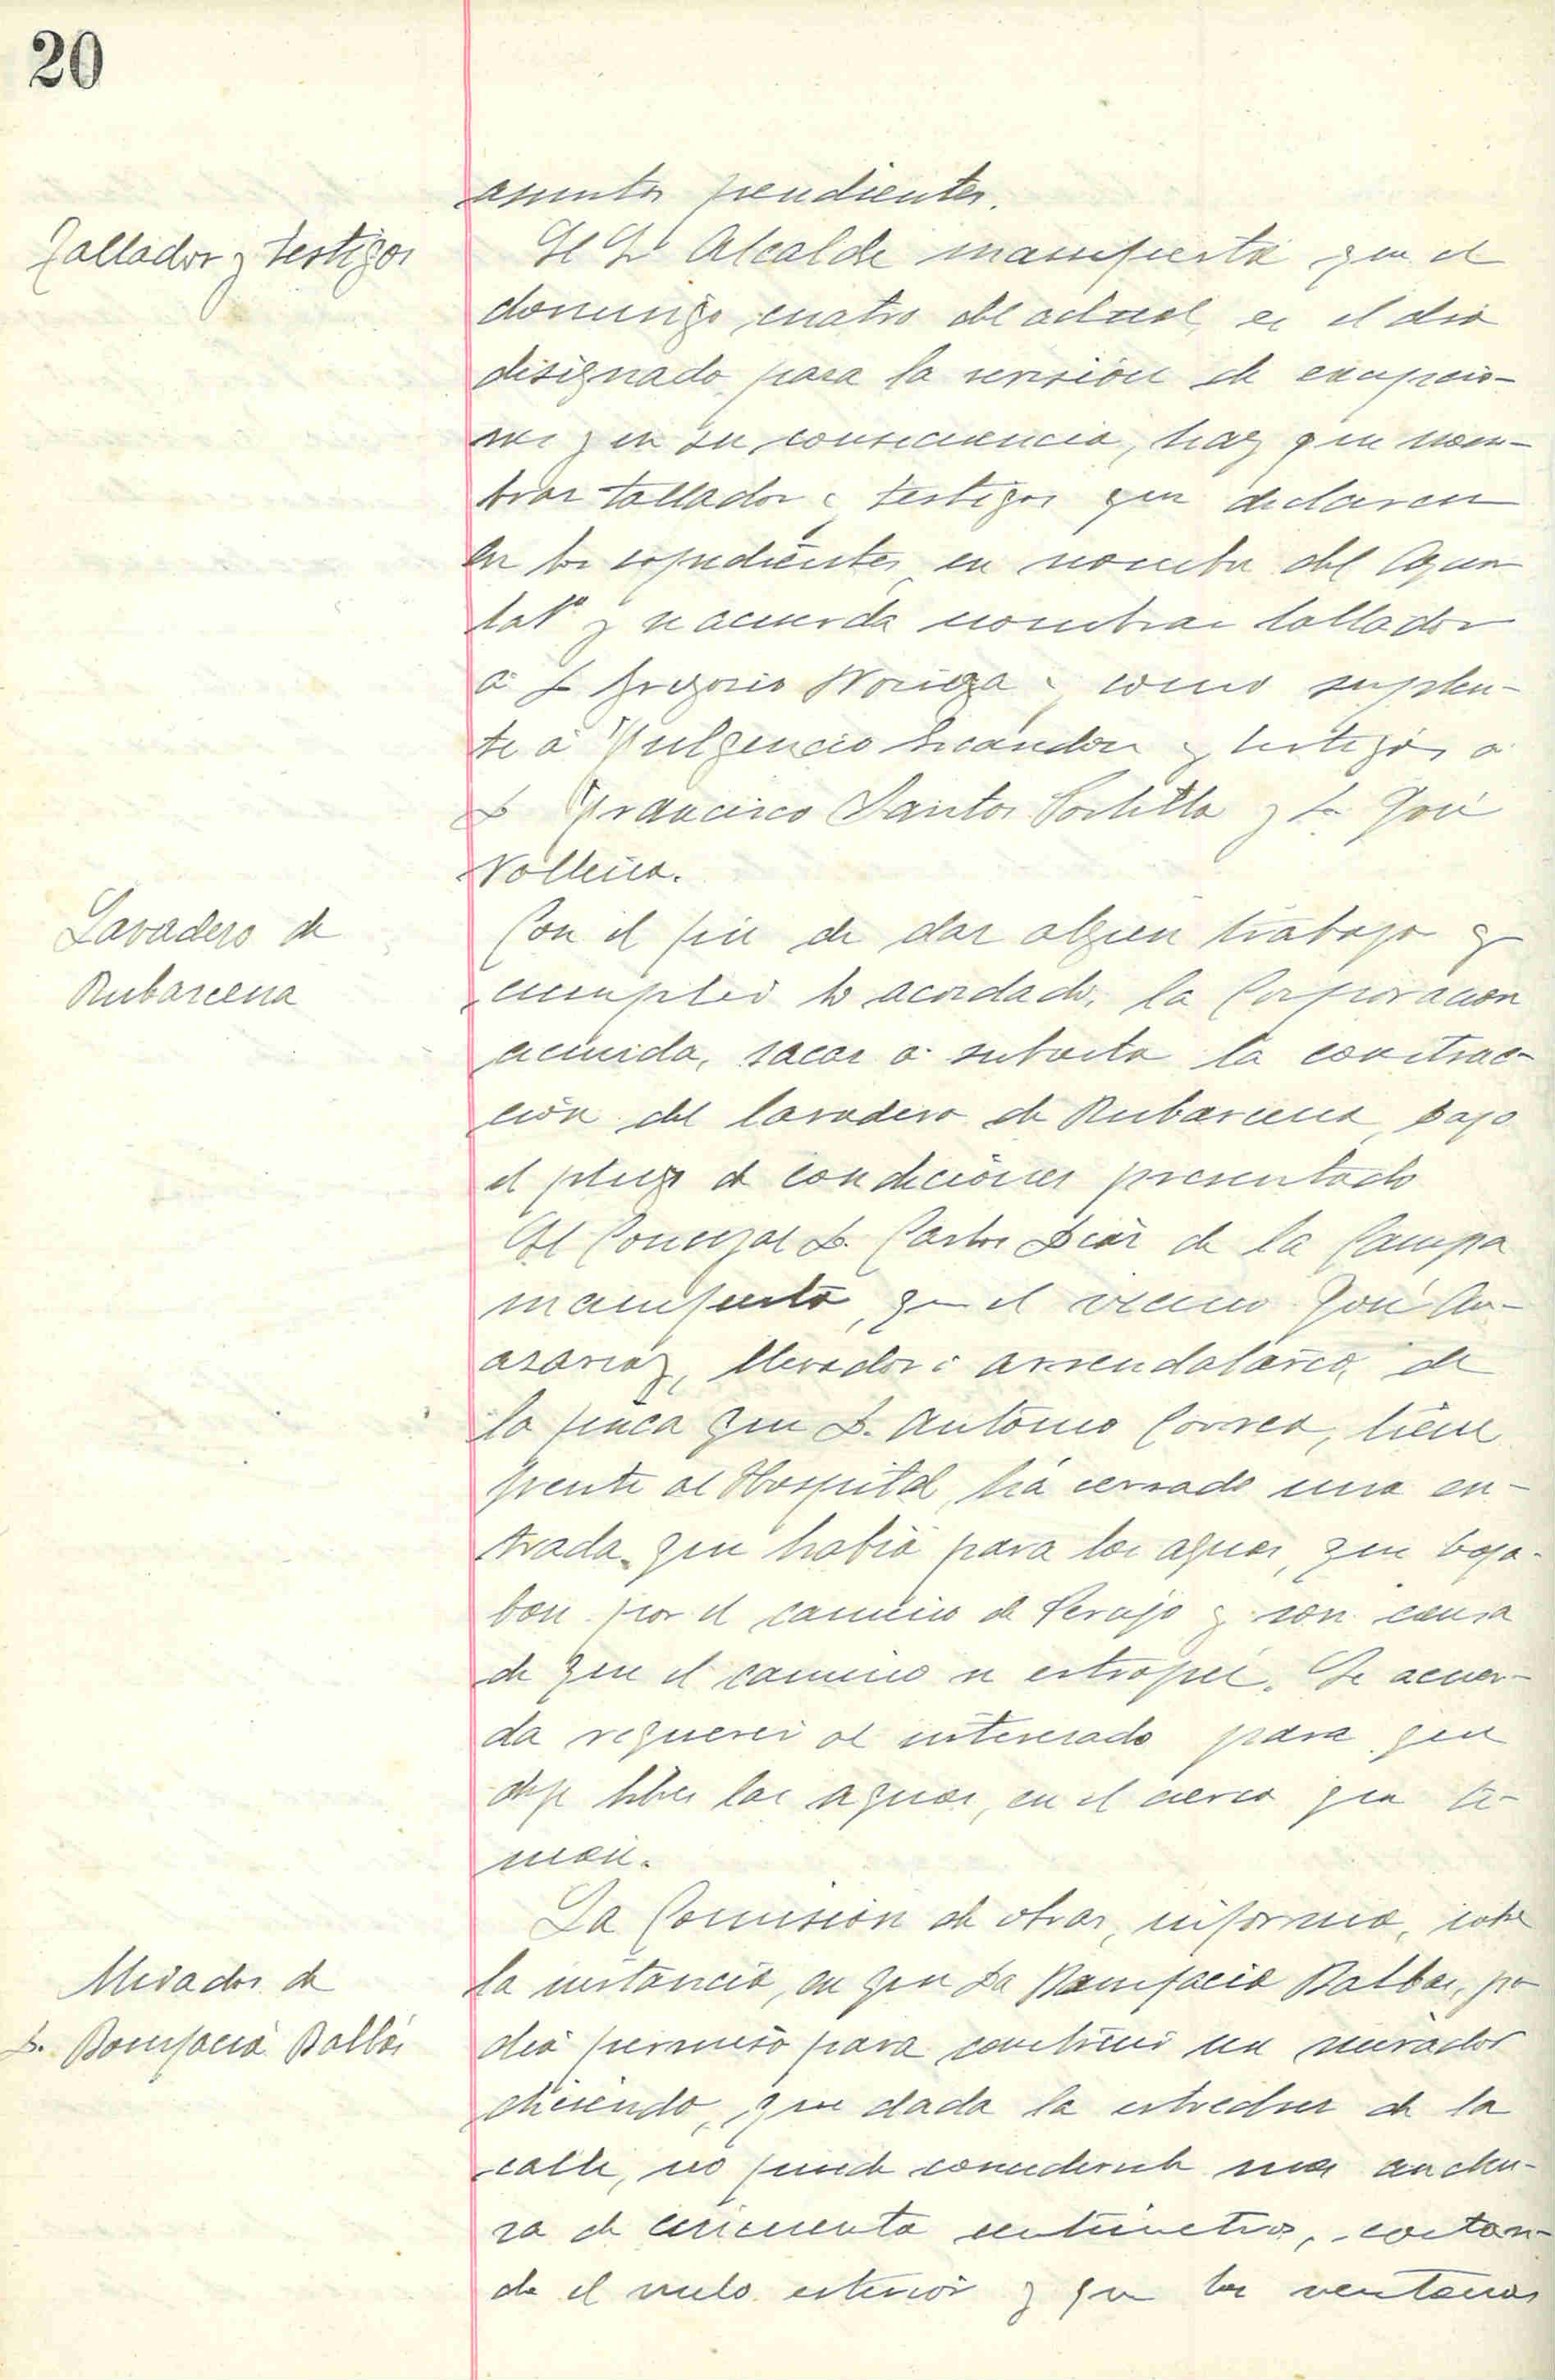 20
asuntos pendientes.
Tallador y testigos
El Sr Alcalde manifiesta que el
domingo cuatro del actual, es el dia
disignado para la revisión de exupcio-
nes y en su consecuencia, hay que nom-
brar tallador y testigos que declaren
en los expedientes en nombre del Ayun
tatº y se acuerda nombrar tallador
a D Gregorio Noriega y como suplen-
te a Fulgencio y testigos a
D Francisco Santos Portilla y D. José
Lavadero de
Rubarcena
Con el fin de dar algun trabajo y
cumplir lo acordado, la Corporacion
acuerda, sacar a subasta la construc-
ción del lavadero de Rubarcena, bajo
el pliego de condiciones presentado
El Concejal D. Carlos Diaz de la Campa
manifiesta, que el vecino José
llevador o arrendatario, de
la finca que D. Antonio Correa, tiene
frente al Hospital, ha cerrado una en-
trada que habia para las aguas, que baja-
ban por el camino de Perujo y son causa
de que el camino se estropee. Se acuer-
da requerir al interesado para que
deje libres las aguas, en el cierro que te-
nian.
La Comision de obras, informa, sobre
Mirador de
D. Bonifacia Balbás
la instancia, en que Da Bonifacia Balbás, pe
dia permiso para construir un mirador
diciendo, que dada la estrechez de la
calle, no puede concedersele mas anchu-
ra de cincuenta centimetros, contan-
do el vuelo exterior y que las ventanas